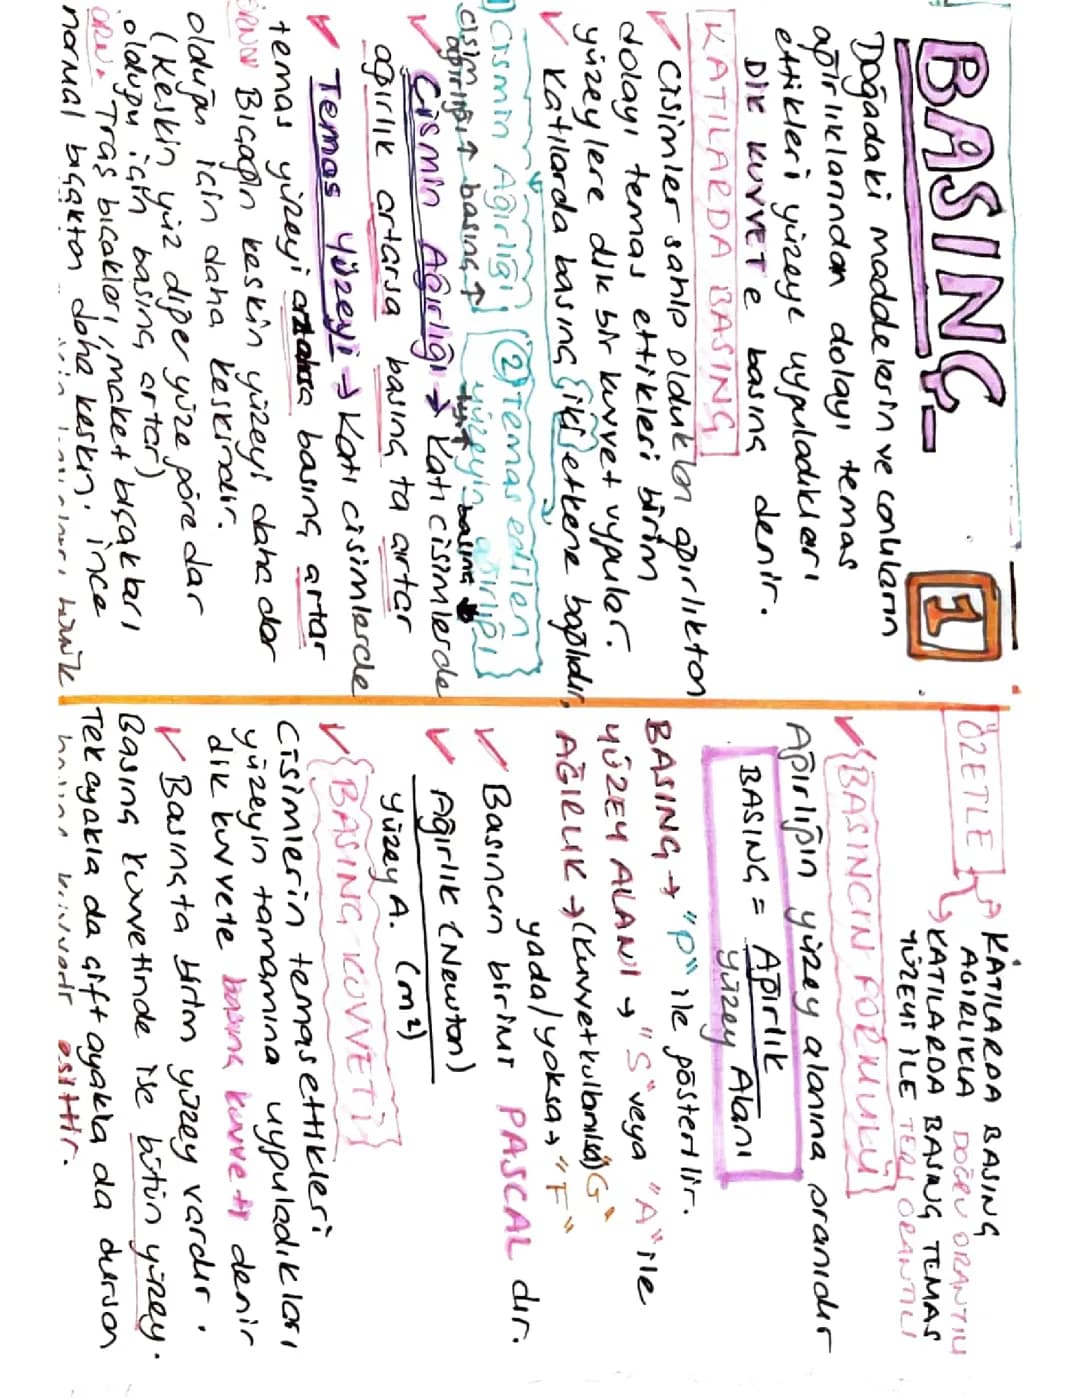 BASINÇ
1
Doğadaki maddelerin ve canlıların
ağırlıklarından dolayı temas
ettikleri yüzeye uyguladıkları
DİK KUVVETe basınç denir.
KATILARDA BASINÇ
✓ Cisimler sahip oldukları ağırlıktan
dolayı temas ettikleri birim
yüzeylere dik bir kuvvet uygular.
✓ Katılarda basınç iki etkene bağlıdır.
1) Cismin Ağırlığı 2) Temas edilen
yüzeyin ağırlığı
cisim ağırlığı↑ basınç↑
basınç ↓
✓ Cismin Ağırlığı → Katı cisimlerde
ağırlık artarsa basınç ta artar
✓ Temas Yüzeyi → Katı cisimlerde
temas yüzeyi basınç artar
ÖRN: Bıçağın keskin yüzeyi daha dar
olduğu için daha keskindir.
(Keskin yüz diğer yüze göre dar
olduğu için basınç artar)
ÖRN. Traş bıçakları, maket bıçakları
normal bıçaktan daha keskin, ince
ÖZETLE
→ KATILARDA BASINÇ
AĞIRLIKLA DOĞRU ORANTILI
→ KATILARDA BASINÇ TEMAS
YÜZEYİ İLE TERS ORANTILI
✓ BASINCIN FORMÜLÜ
Ağırlığın yüzey alanına oranıdır
BASINÇ = Ağırlık
Yüzey Alanı
BASINÇ → "P" ile gösterilir.
YÜZEY ALANI → "S" veya "A" ile
AĞIRLIK → (Kuvvet kullanılsa) "G"
yada/yoksa → "F"
✓ Basıncın birimi PASCAL dır.
✓ Ağırlık (Newton)
Yüzey A. (m²)
✓ BASINÇ KUVVETİ
Cisimlerin temas ettikleri
yüzeyin tamamına uyguladıkları
dik kuvvete basınç kuvveti denir
✓ Basınçta birim yüzey vardır.
Basınç kuvvetinde ise bütün yüzey.
Tek ayakla da çift ayakla da dursan
basınç kuvveti eşittir.